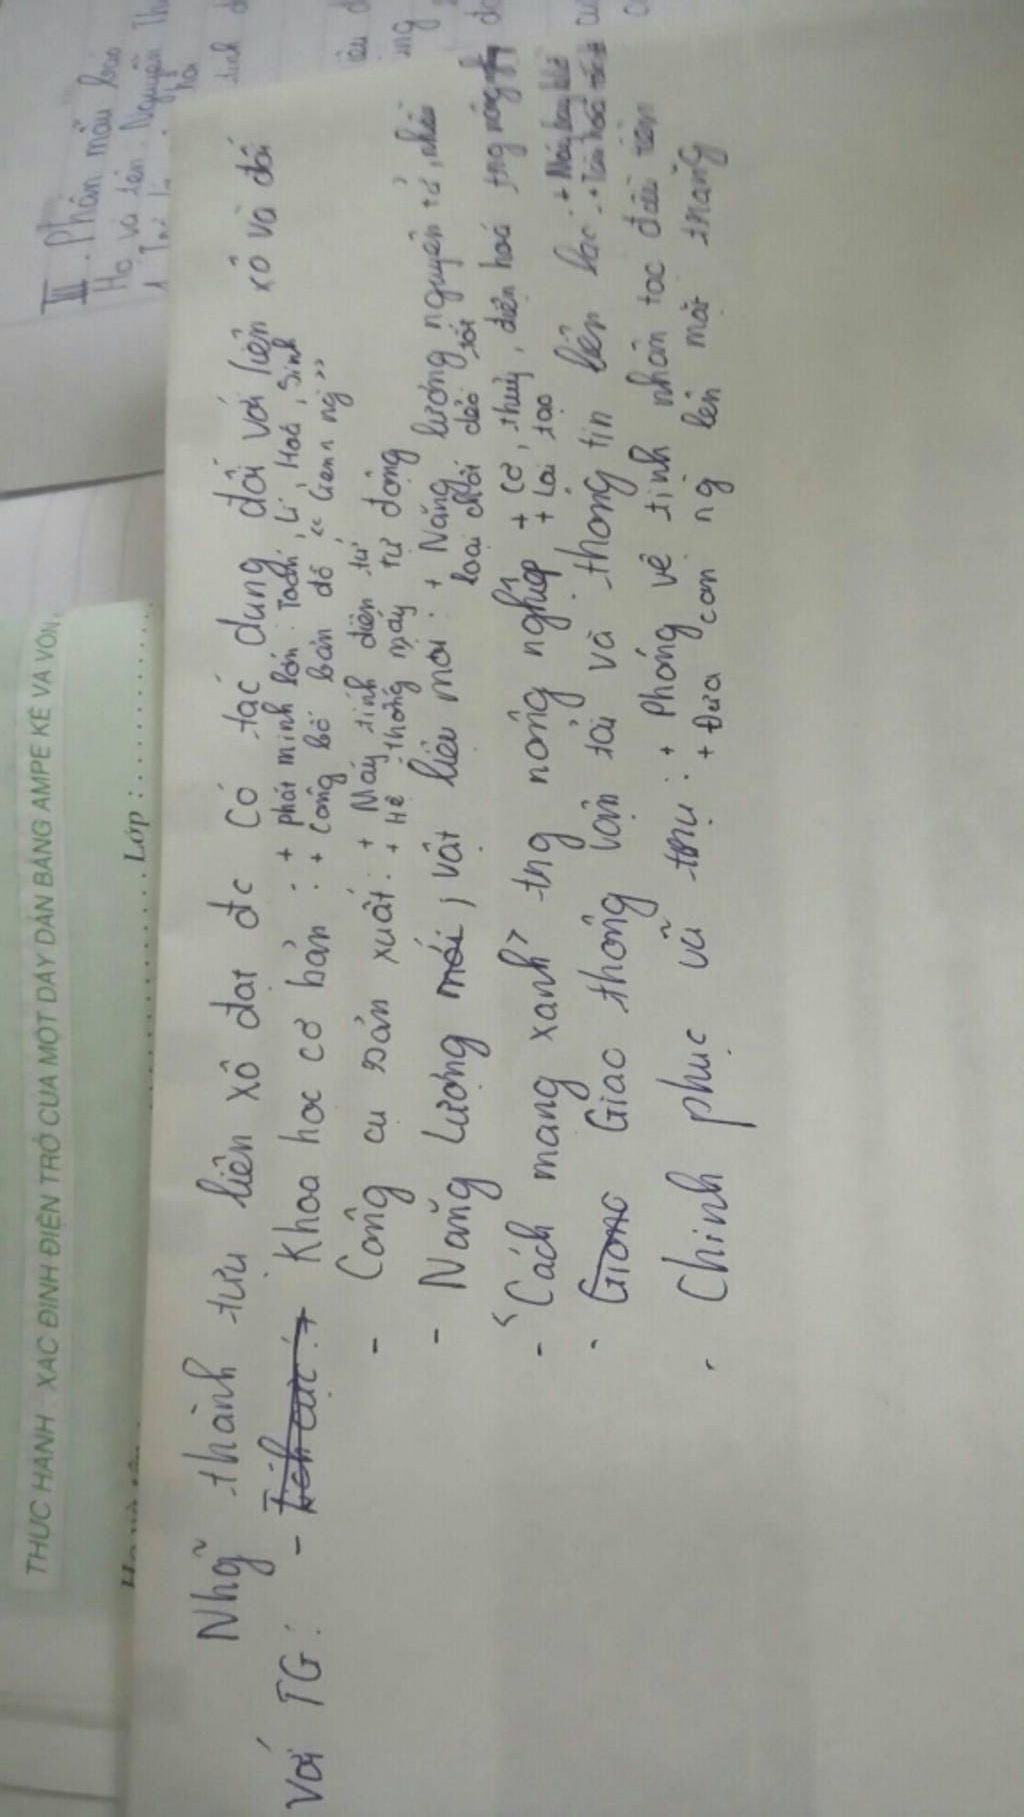 THỰC HÀNH : XÁC ĐỊNH ĐIỆN TRỞ CỦA MỘT DÂY DẪN BẰNG AMPE KẾ VÀ VÔN
Lớp :
III. Phần mẫu báo
Họ và tên. Nguyễn Th
Nhg̃ thành tựu liên xô đạt đc có tác dụng đối với liên xô và đối
với TG: - Khoa học cơ bản : + phát minh lớn: Toán, Lí, Hoá, Sinh
+ Công bố bản đồ "Gen ng"
- Công cụ sản xuất: + Máy tính điện tử
+ Hệ thống máy tự động
- Năng lượng mới, vật liệu mới: + Năng lượng nguyên tử, nhiều
loại chất dẻo
- "Cách mạng xanh" tng nông nghiệp + Cơ, thuỷ, điện hoá
+ Lai tạo
- Giao thông vận tải và thông tin liên lạc:
- Chinh phục vũ trụ: + Phóng vệ tinh nhân tạo đầu tiên
+ Đưa con ng lên mặt trăng